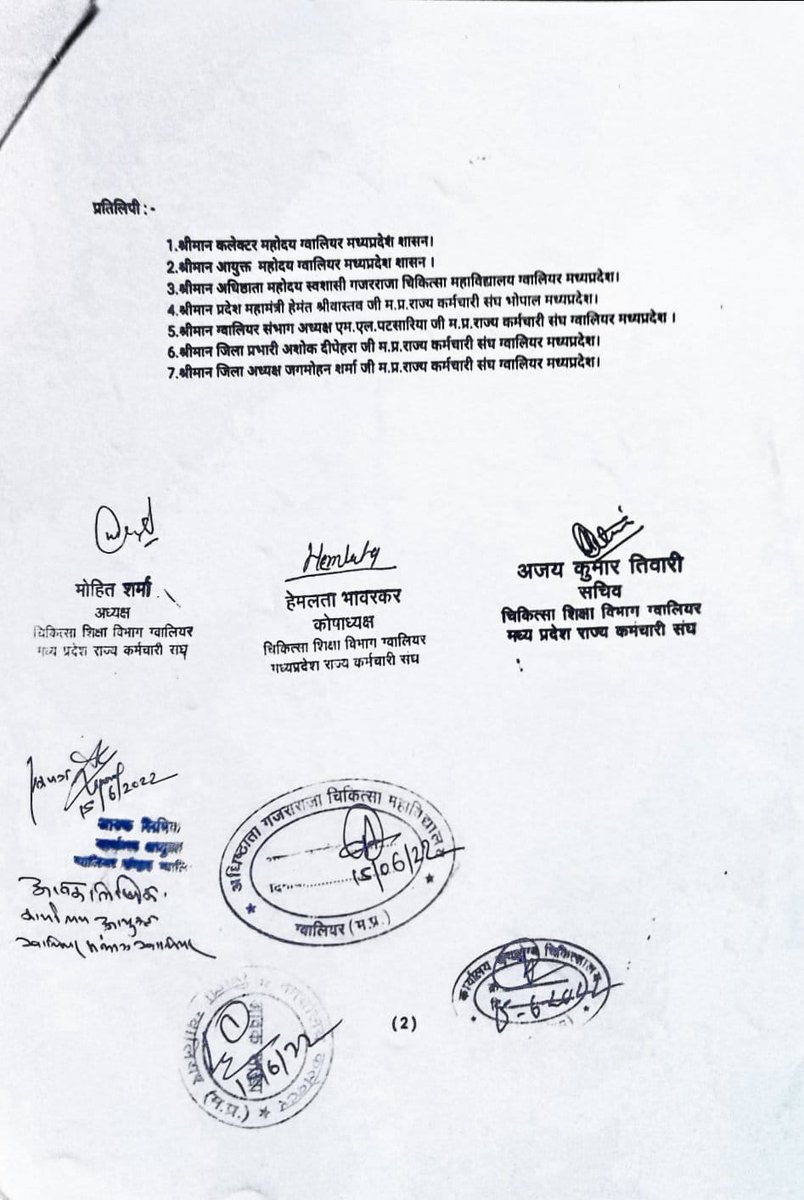 प्रतिलिपी :-
1.श्रीमान कलेक्टर महोदय ग्वालियर मध्यप्रदेश शासन।
2.श्रीमान आयुक्त महोदय ग्वालियर मध्यप्रदेश शासन ।
3.श्रीमान अधिष्ठाता महोदय स्वशासी गजरराजा चिकित्सा महाविद्यालय ग्वालियर मध्यप्रदेश।
4.श्रीमान प्रदेश महामंत्री हेमंत श्रीवास्तव जी म.प्र.राज्य कर्मचारी संघ भोपाल मध्यप्रदेश।
5.श्रीमान ग्वालियर संभाग अध्यक्ष एम.एल.पटसारिया जी म.प्र.राज्य कर्मचारी संघ ग्वालियर मध्यप्रदेश ।
6.श्रीमान जिला प्रभारी अशोक दीपेहरा जी म.प्र.राज्य कर्मचारी संघ ग्वालियर मध्यप्रदेश।
7.श्रीमान जिला अध्यक्ष जगमोहन शर्मा जी म.प्र.राज्य कर्मचारी संघ ग्वालियर मध्यप्रदेश।
मोहित शर्मा
अध्यक्ष
चिकित्सा शिक्षा विभाग ग्वालियर
मध्य प्रदेश राज्य कर्मचारी संघ
Hemlata
हेमलता भावरकर
कोषाध्यक्ष
चिकित्सा शिक्षा विभाग ग्वालियर
मध्यप्रदेश राज्य कर्मचारी संघ
अजय कुमार तिवारी
सचिव
चिकित्सा शिक्षा विभाग ग्वालियर
मध्य प्रदेश राज्य कर्मचारी संघ
15/6/2022
आवक लिपिक
कार्यालय आयुक्त
ग्वालियर संभाग ग्वालि
आवक लिपिक
कार्यालय आयुक्त
ग्वालियर संभाग ग्वालियर
अधिष्ठाता गजराराजा चिकित्सा महाविद्यालय
15/06/22
ग्वालियर (म.प्र.)
कार्यालय
चिकित्सालय
15-6-2022
कलेक्टर
ग्वालियर (म.प्र.)
(2)